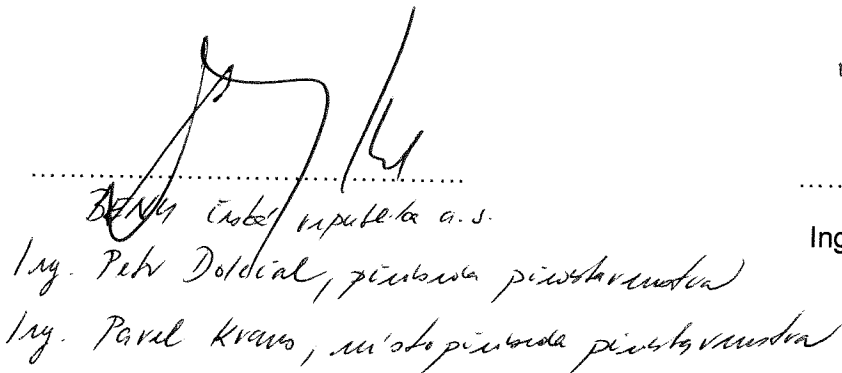 česká republika a.s.
Ing
Ing. Petr Doležal, předseda představenstva
Ing. Pavel Kraus, místopředseda představenstva